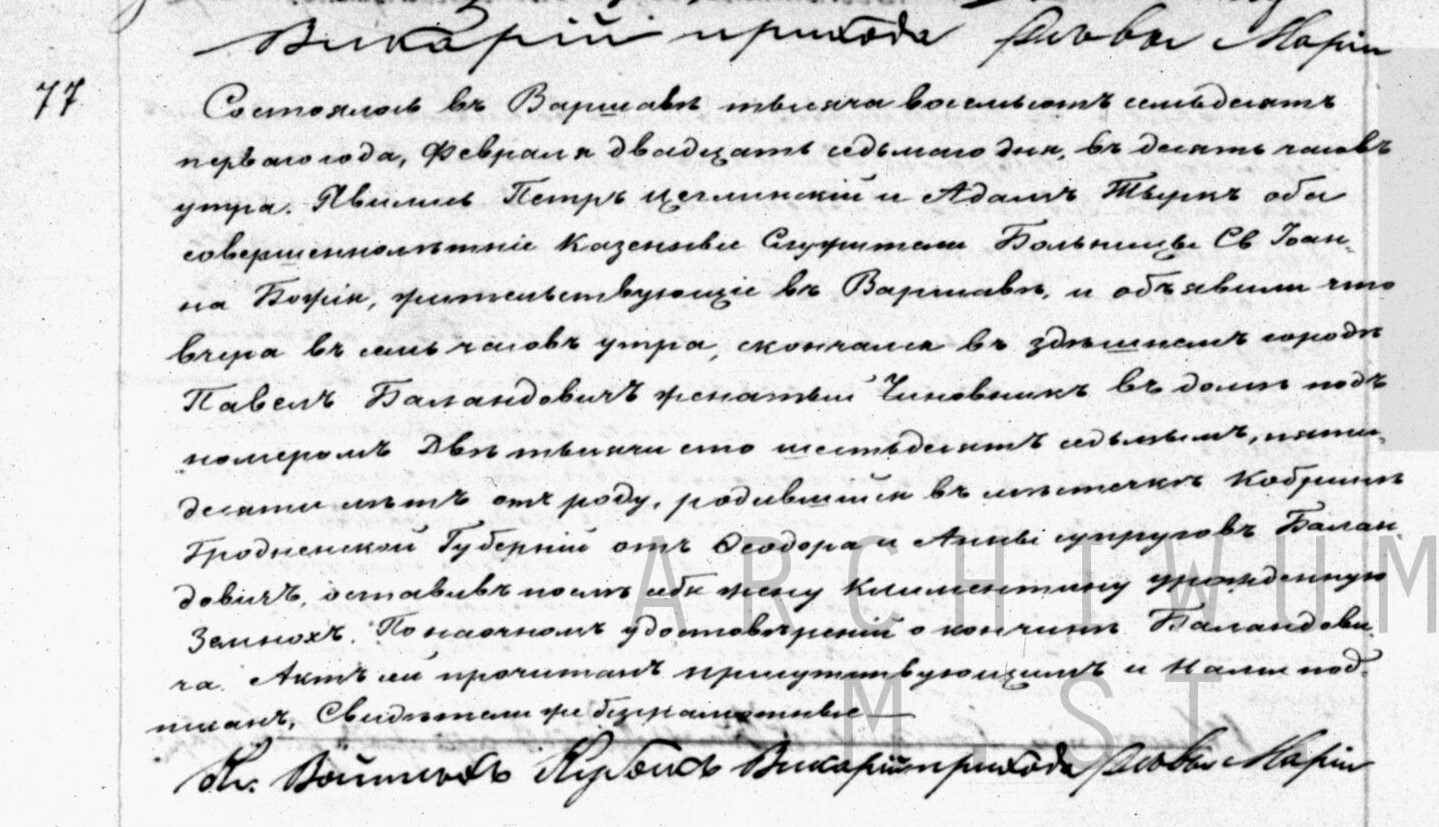 Викарій прихода Дѣвы Маріи
77
Состоялось въ Варшавѣ тысяча восемьсотъ семьдесятъ
перваго года, Февраля двадцать седьмаго дня, въ десять часовъ
утра. Явились Петръ Цеглинскій и Адамъ Тыркъ оба
совершеннолѣтніе Казенные Служители Больницы Св Іоан-
на Божія, жительствующіе въ Варшавѣ, и объявили что
вчера въ семь часовъ утра, скончался въ здѣшнемъ городѣ
Павелъ Баландовичъ женатый Чиновникъ въ домѣ подъ
номеромъ Двѣ тысячи сто шестьдесятъ седьмымъ, пяти-
десяти лѣтъ отъ роду, родившійся въ мѣстечкѣ Кобринѣ
Гродненской Губерніи отъ Ѳеодора и Анны супруговъ Балан-
довичъ, оставивъ послѣ себя жену Климентину урожденную
Земнохъ. По наочномъ удостовѣреніи о кончинѣ Баландови-
ча. Актъ сей прочитанъ присутствующимъ и Нами под-
писанъ, Свидѣтели же безграмотные
Кс. Войтехъ Викарій прихода Дѣвы Маріи
ARCHIWUM
M. ST